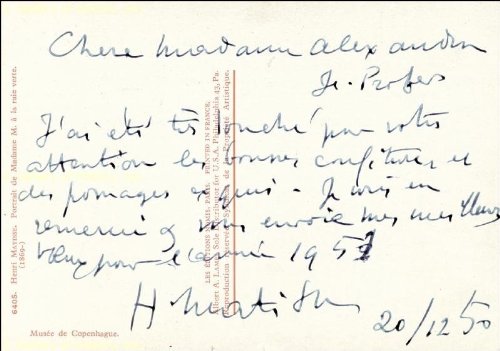 Chere madame Alexandre
J'ai été très touché par votre
attention les bonnes confitures et
des fromages exquis - Je vous en
remercie & vous envoie mes meilleurs
vœux pour l'année 1951
H. Matisse
20/12 50
6408. Henri Matisse. Portrait de Madame M. à la raie verte.
(1869- )
LES ÉDITIONS NOMIS, PARIS. PRINTED IN FRANCE.
Albert A. Sole Distributor for U.S.A. Philadelphia 43, Pa.
Reproduction réservée de la Propriété Artistique.
Musée de Copenhague.